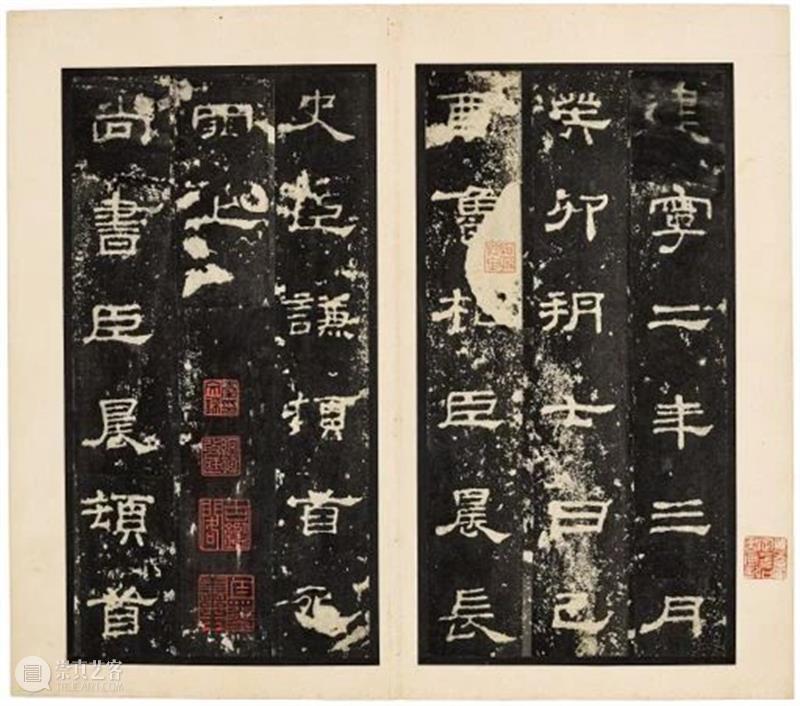 建寧二年三月
癸卯朔七日己
酉魯相臣晨長
史臣謙頓首死
罪上
尚書臣晨頓首
崇真艺客
TRUEART.COM